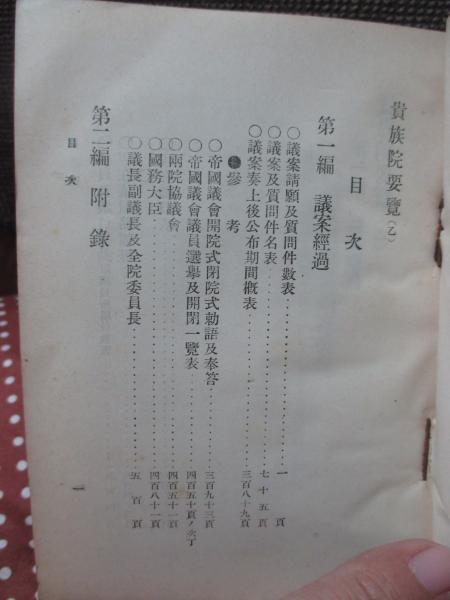 貴族院要覽(乙)
目次
第一編 議案經過
〇議案請願及質問件數表…………一頁
〇議案及質問件名表…………七十五頁
〇議案奏上後公布期間概表…………三百八十九頁
●參考
〇帝國議會開院式閉院式勅語及奉答…………三百九十三頁
〇帝國議會議員選擧及開閉一覽表…………四百五十頁ノ次丁
〇兩院協議會…………四百五十一頁
〇國務大臣…………四百八十一頁
〇議長副議長及全院委員長…………五百頁
第二編 附錄
目次
一